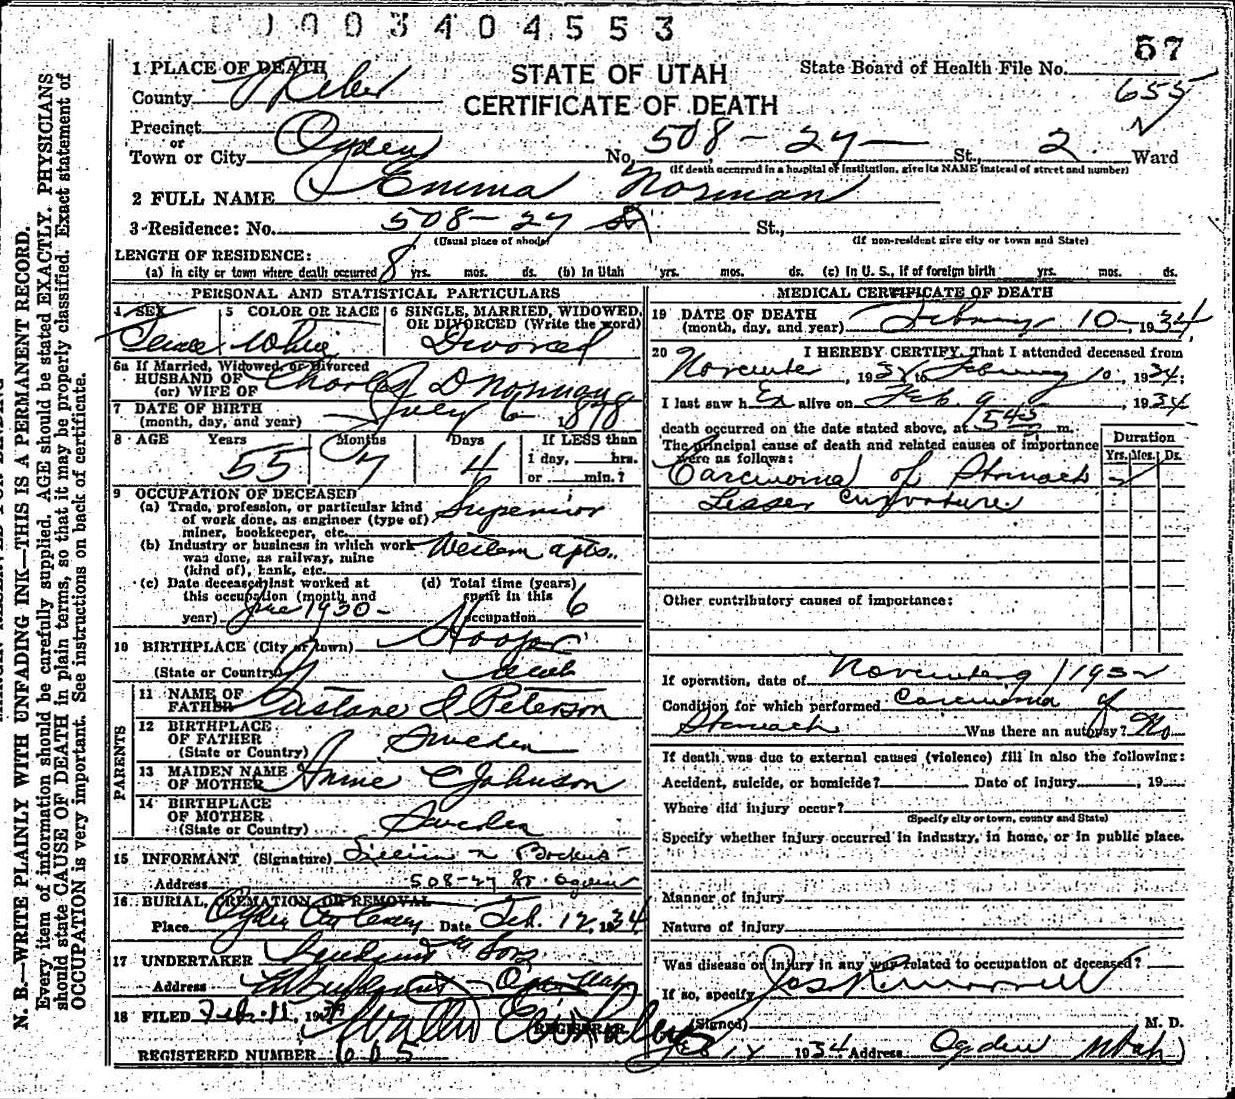 0003404553
57
1 PLACE OF DEATH
County Weber
STATE OF UTAH
CERTIFICATE OF DEATH
State Board of Health File No.
655
Precinct
or
Town or City Ogden No. 508-27 St., 2 Ward
(If death occurred in a hospital or institution, give its NAME instead of street and number)
2 FULL NAME Emma Norman
3 Residence: No. 508-27 St St.,
(Usual place of abode) (If non-resident give city or town and State)
LENGTH OF RESIDENCE:
(a) in city or town where death occurred 8 yrs. mos. ds. (b) In Utah yrs. mos. ds. (c) In U. S., if of foreign birth yrs. mos. ds.
PERSONAL AND STATISTICAL PARTICULARS
4 SEX 5 COLOR OR RACE 6 SINGLE, MARRIED, WIDOWED, OR DIVORCED (Write the word)
White Divorced
6a If Married, Widowed, or Divorced
HUSBAND OF
(or) WIFE OF Charles D Norman
7 DATE OF BIRTH
(month, day, and year) July 6 1878
8 AGE Years Months Days If LESS than
1 day, hrs.
or min.?
55 7 4
9 OCCUPATION OF DECEASED
(a) Trade, profession, or particular kind
of work done, as engineer (type of)
miner, bookkeeper, etc.
(b) Industry or business in which work
was done, as railway, mine
(kind of), bank, etc. apts.
(c) Date deceased last worked at
this occupation (month and
year) 1930
(d) Total time (years)
spent in this
occupation 6
10 BIRTHPLACE (City or town) Hooper
(State or Country) Utah
PARENTS
11 NAME OF
FATHER Peterson
12 BIRTHPLACE
OF FATHER
(State or Country) Sweden
13 MAIDEN NAME
OF MOTHER Annie C Johnson
14 BIRTHPLACE
OF MOTHER
(State or Country) Sweden
15 INFORMANT (Signature)
Address 508-27 St. Ogden
16 BURIAL, CREMATION OR REMOVAL
Place Ogden City Cemetery Date Feb. 12, 1934
17 UNDERTAKER & Sons
Address Ogden Utah
18 FILED Feb. 11, 1934
REGISTRAR.
REGISTERED NUMBER
MEDICAL CERTIFICATE OF DEATH
19 DATE OF DEATH
(month, day, and year) February 10, 1934
20 I HEREBY CERTIFY, That I attended deceased from
November, 1932 to February 10, 1934;
I last saw her alive on Feb. 9, 1934
death occurred on the date stated above, at m.
The principal cause of death and related causes of importance
were as follows:
Duration
Yrs. Mos. Ds.
Carcinoma of Stomach
Lesser Curvature
Other contributory causes of importance:
If operation, date of November 1932
Condition for which performed Carcinoma of
Stomach Was there an autopsy? No
If death was due to external causes (violence) fill in also the following:
Accident, suicide, or homicide? Date of injury, 19
Where did injury occur?
(Specify city or town, county and State)
Specify whether injury occurred in industry, in home, or in public place.
Manner of injury
Nature of injury
Was disease or injury in any way related to occupation of deceased?
If so, specify
(Signed) M. D.
1934 Address Ogden Utah
N. B.—WRITE PLAINLY WITH UNFADING INK—THIS IS A PERMANENT RECORD.
Every item of information should be carefully supplied. AGE should be stated EXACTLY. PHYSICIANS
should state CAUSE OF DEATH in plain terms, so that it may be properly classified. Exact statement of
OCCUPATION is very important. See instructions on back of certificate.